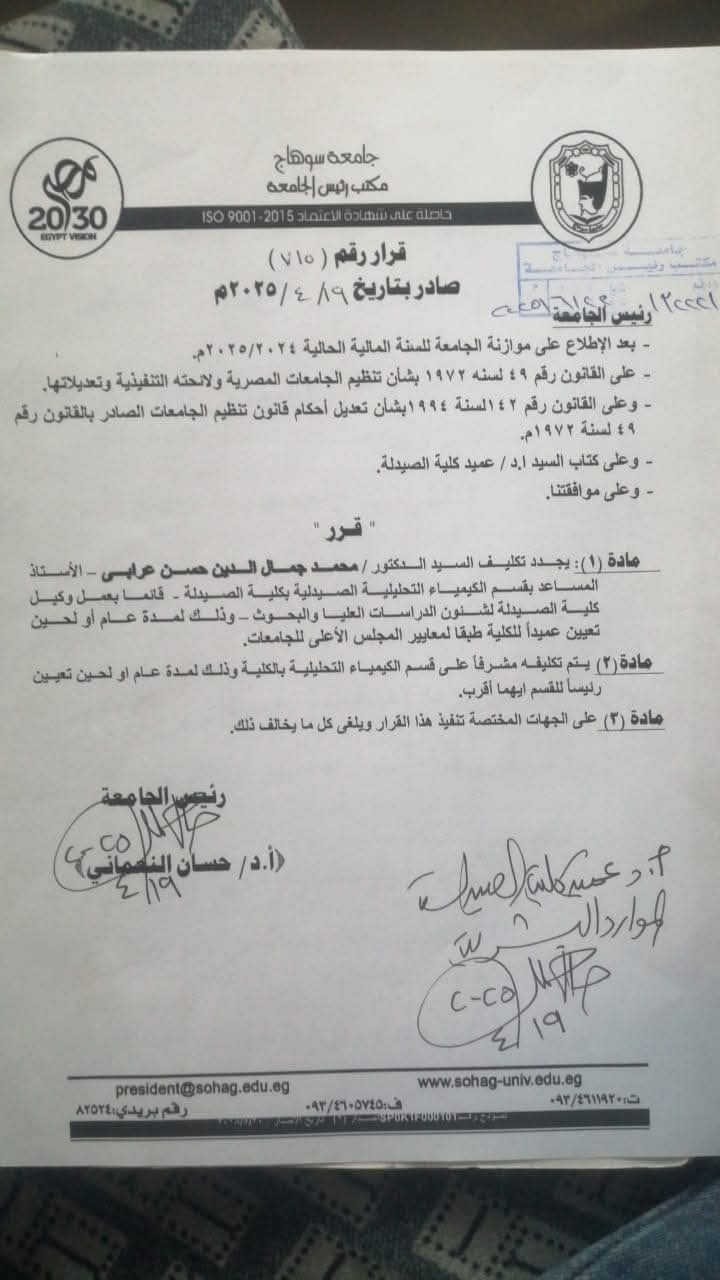 جامعة سوهاج
مكتب رئيس الجامعة
حاصلة على شهادة الاعتماد ISO 9001-2015
مصر
2030
EGYPT VISION
قرار رقم (٧١٥)
صادر بتاريخ ١٩/ ٤/ ٢٠٢٥م
رئيس الجامعة
- بعد الإطلاع على موازنة الجامعة للسنة المالية الحالية ٢٠٢٥/٢٠٢٤م.
- على القانون رقم ٤٩ لسنه ١٩٧٢ بشأن تنظيم الجامعات المصرية ولائحته التنفيذية وتعديلاتها.
- وعلى القانون رقم ١٤٢لسنة ١٩٩٤بشأن تعديل أحكام قانون تنظيم الجامعات الصادر بالقانون رقم
٤٩ لسنة ١٩٧٢م.
- وعلى كتاب السيد ا.د/ عميد كلية الصيدلة.
- وعلى موافقتنا.
" قرر "
مادة (١): يجدد تكليف السيد الدكتور / محمد جمال الدين حسن عرابى – الأستاذ
المساعد بقسم الكيمياء التحليلية الصيدلية بكلية الصيدلة - قائما بعمل وكيل
كلية الصيدلة لشئون الدراسات العليا والبحوث – وذلك لمدة عام أو لحين
تعيين عميداً للكلية طبقا لمعايير المجلس الأعلى للجامعات.
مادة(٢) يتم تكليفه مشرفاً على قسم الكيمياء التحليلية بالكلية وذلك لمدة عام او لحين تعيين
رئيساً للقسم ايهما أقرب.
مادة (٣) على الجهات المختصة تنفيذ هذا القرار ويلغى كل ما يخالف ذلك.
رئيس الجامعة
(أ.د/ حسان النعماني)
٤/١٩
أ.د عميد كلية الصيدلة
الموارد البشرية
٤/١٩
president@sohag.edu.eg www.sohag-univ.edu.eg
ت:٠٩٣/٤٦١١٩٢٠ ف:٠٩٣/٤٦٠٥٧٤٥ رقم بريدي:٨٢٥٢٤